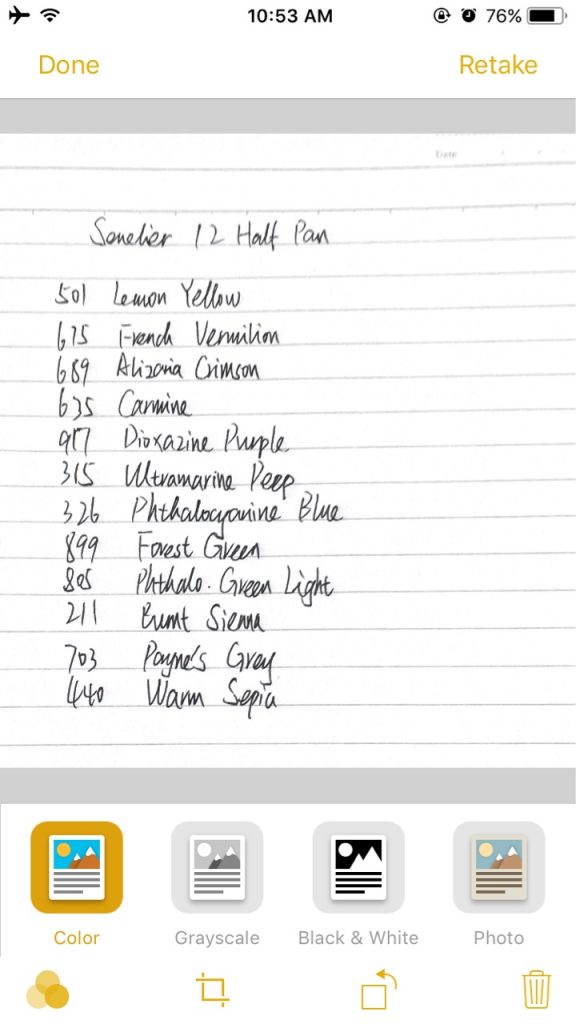 10:53 AM 76%
Done Retake
Date
Senelier 12 Half Pan
501 Lemon Yellow
675 French Vermilion
689 Alizaria Crimson
635 Carmine
917 Dioxazine Purple
315 Ultramarine Peep
326 Phthalocyanine Blue
899 Forest Green
805 Phthalo. Green Light
211 Burnt Sienna
703 Payne's Grey
440 Warm Sepia
Color Grayscale Black & White Photo